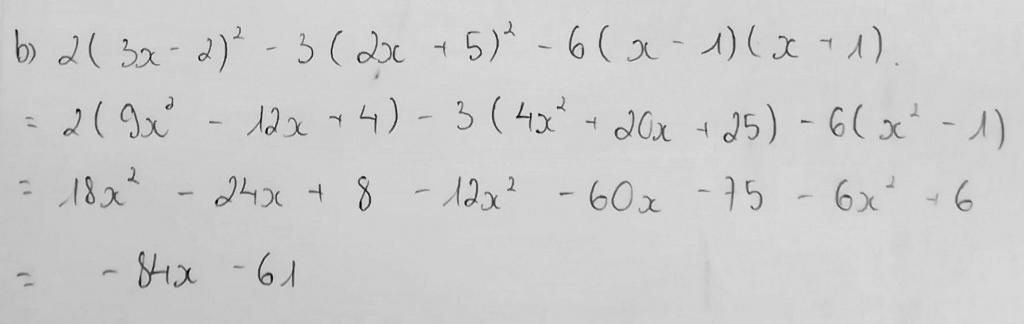 b) 2(3x - 2)² - 3(2x + 5)² - 6(x - 1)(x + 1).
= 2(9x² - 12x + 4) - 3(4x² + 20x + 25) - 6(x² - 1)
= 18x² - 24x + 8 - 12x² - 60x - 75 - 6x² + 6
= - 84x - 61